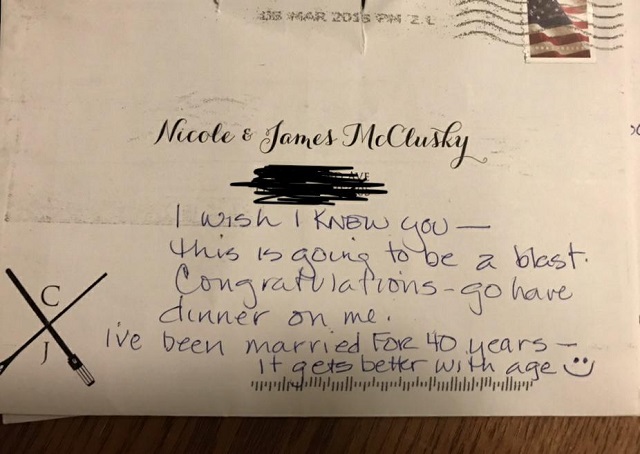 05 MAR 2018 PM 2 L
Nicole & James McClusky
AVE
I wish I KNEW you —
this is going to be a blast.
Congratulations - go have
dinner on me.
C
J
i've been married FOR 40 years —
it gets better with age